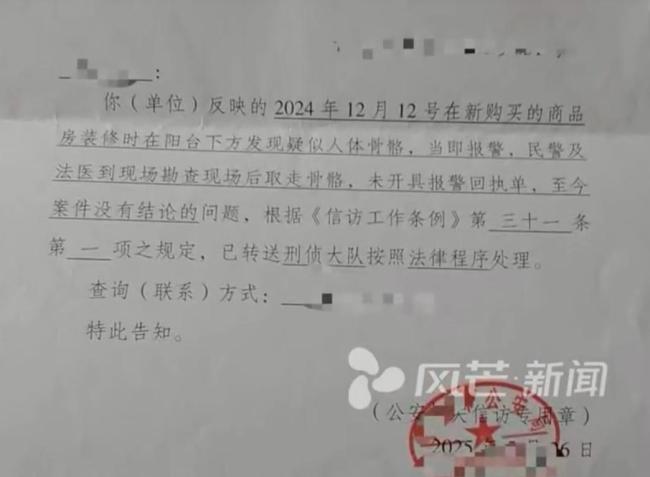 你（单位）反映的 2024 年 12 月 12 号在新购买的商品
房装修时在阳台下方发现疑似人体骨骼，当即报警，民警及
法医到现场勘查现场后取走骨骼，未开具报警回执单，至今
案件没有结论的问题，根据《信访工作条例》第 三十一 条
第 一 项之规定，已转送刑侦大队按照法律程序处理。
查询（联系）方式：
特此告知。
风芒·新闻
公安
（公安 信访专用章）
2025 6 日